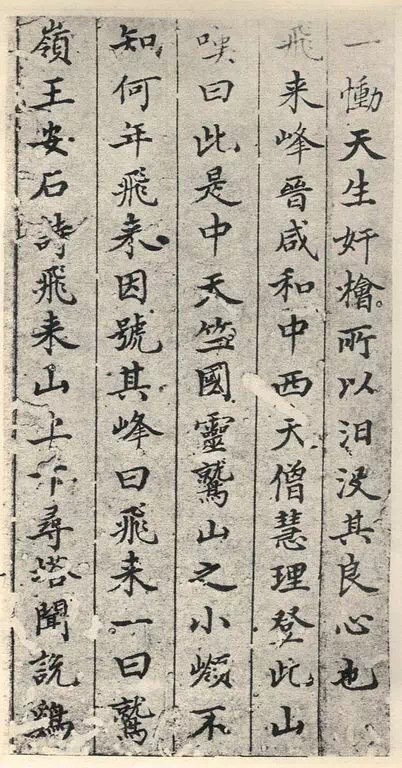 一慟天生奸檜所以汩没其良心也
飛来峰晉咸和中西天僧慧理登此山
嘆曰此是中天竺國靈鷲山之小不
知何年飛来因號其峰曰飛来一曰鷲
嶺王安石詩飛来山上尋塔聞説鷄